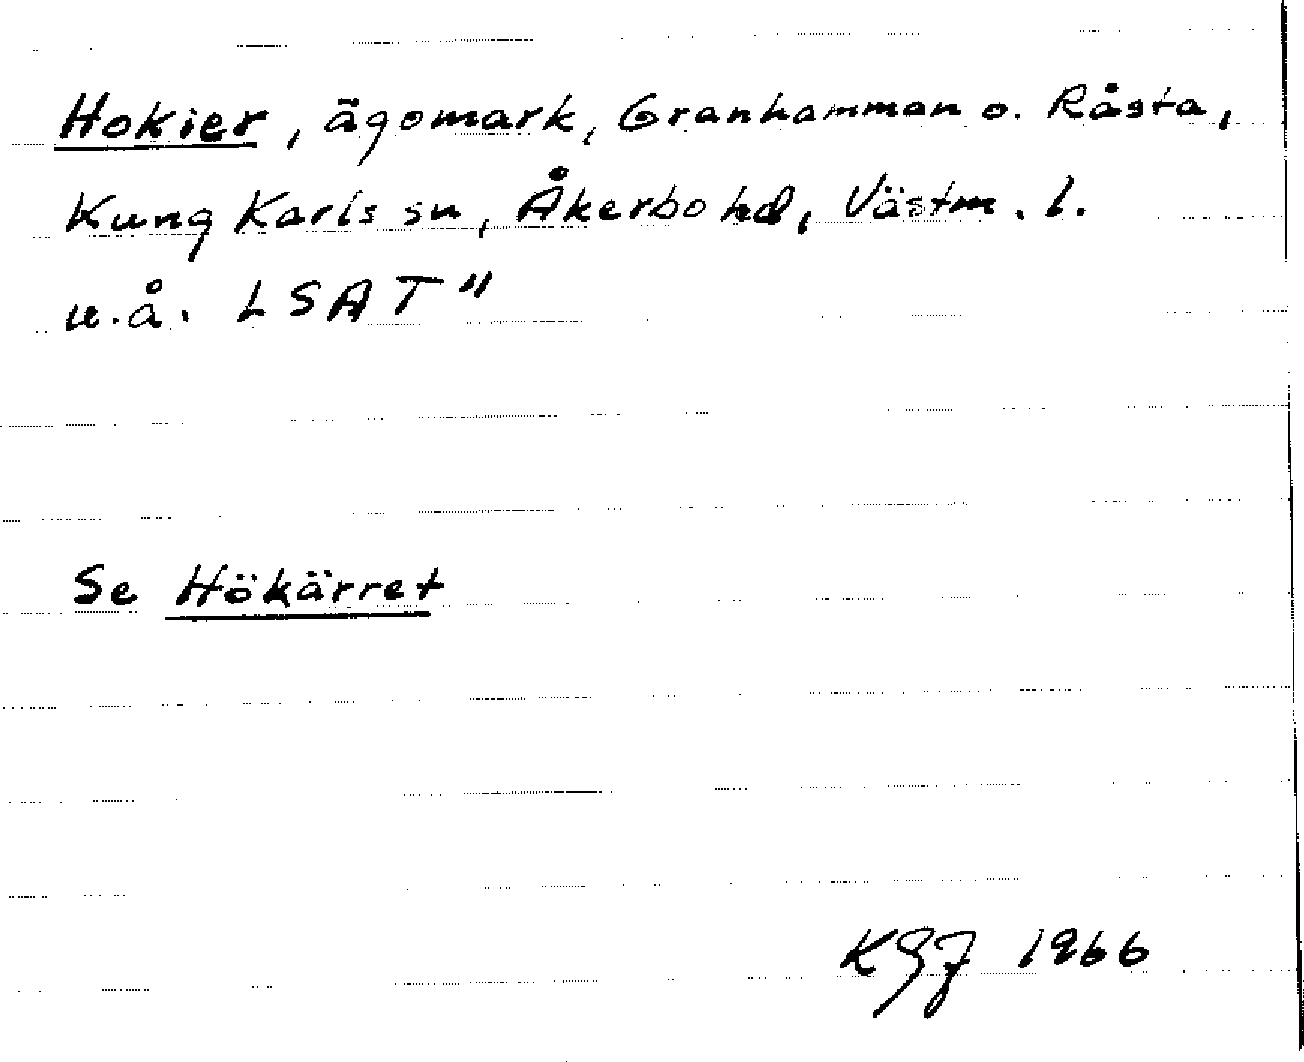 Hokier, ägomark, Granhamman o. Råsta,
Kung Karls sn, Åkerbo hd, Västm. l.
u.å. LSAT"
Se Hökärret
KGJ 1966